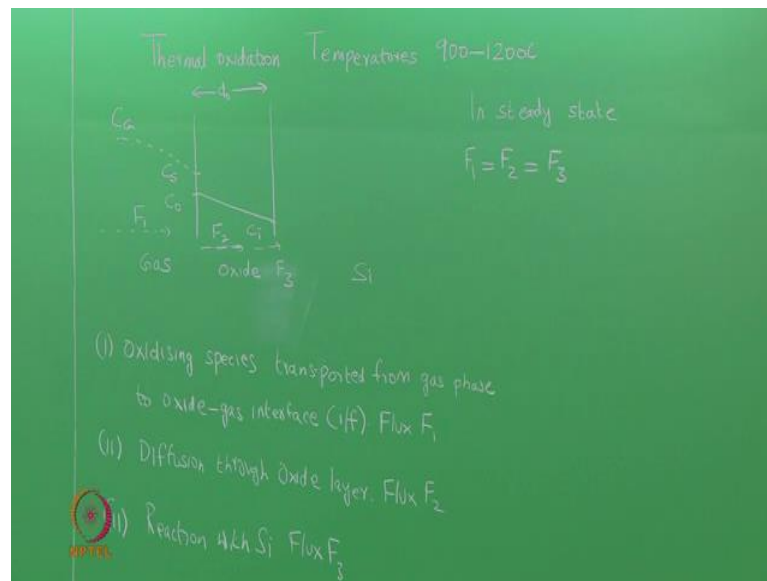 Thermal oxidation Temperatures 900-1200C
d₀
In steady state
C_G
F₁ = F₂ = F₃
C_S
C₀
F₁
F₂ C_i
Gas oxide F₃ Si
(i) Oxidising species transported from gas phase
to oxide-gas interface (i/f) Flux F₁
(ii) Diffusion through Oxide layer. Flux F₂
(iii) Reaction with Si Flux F₃
NPTEL